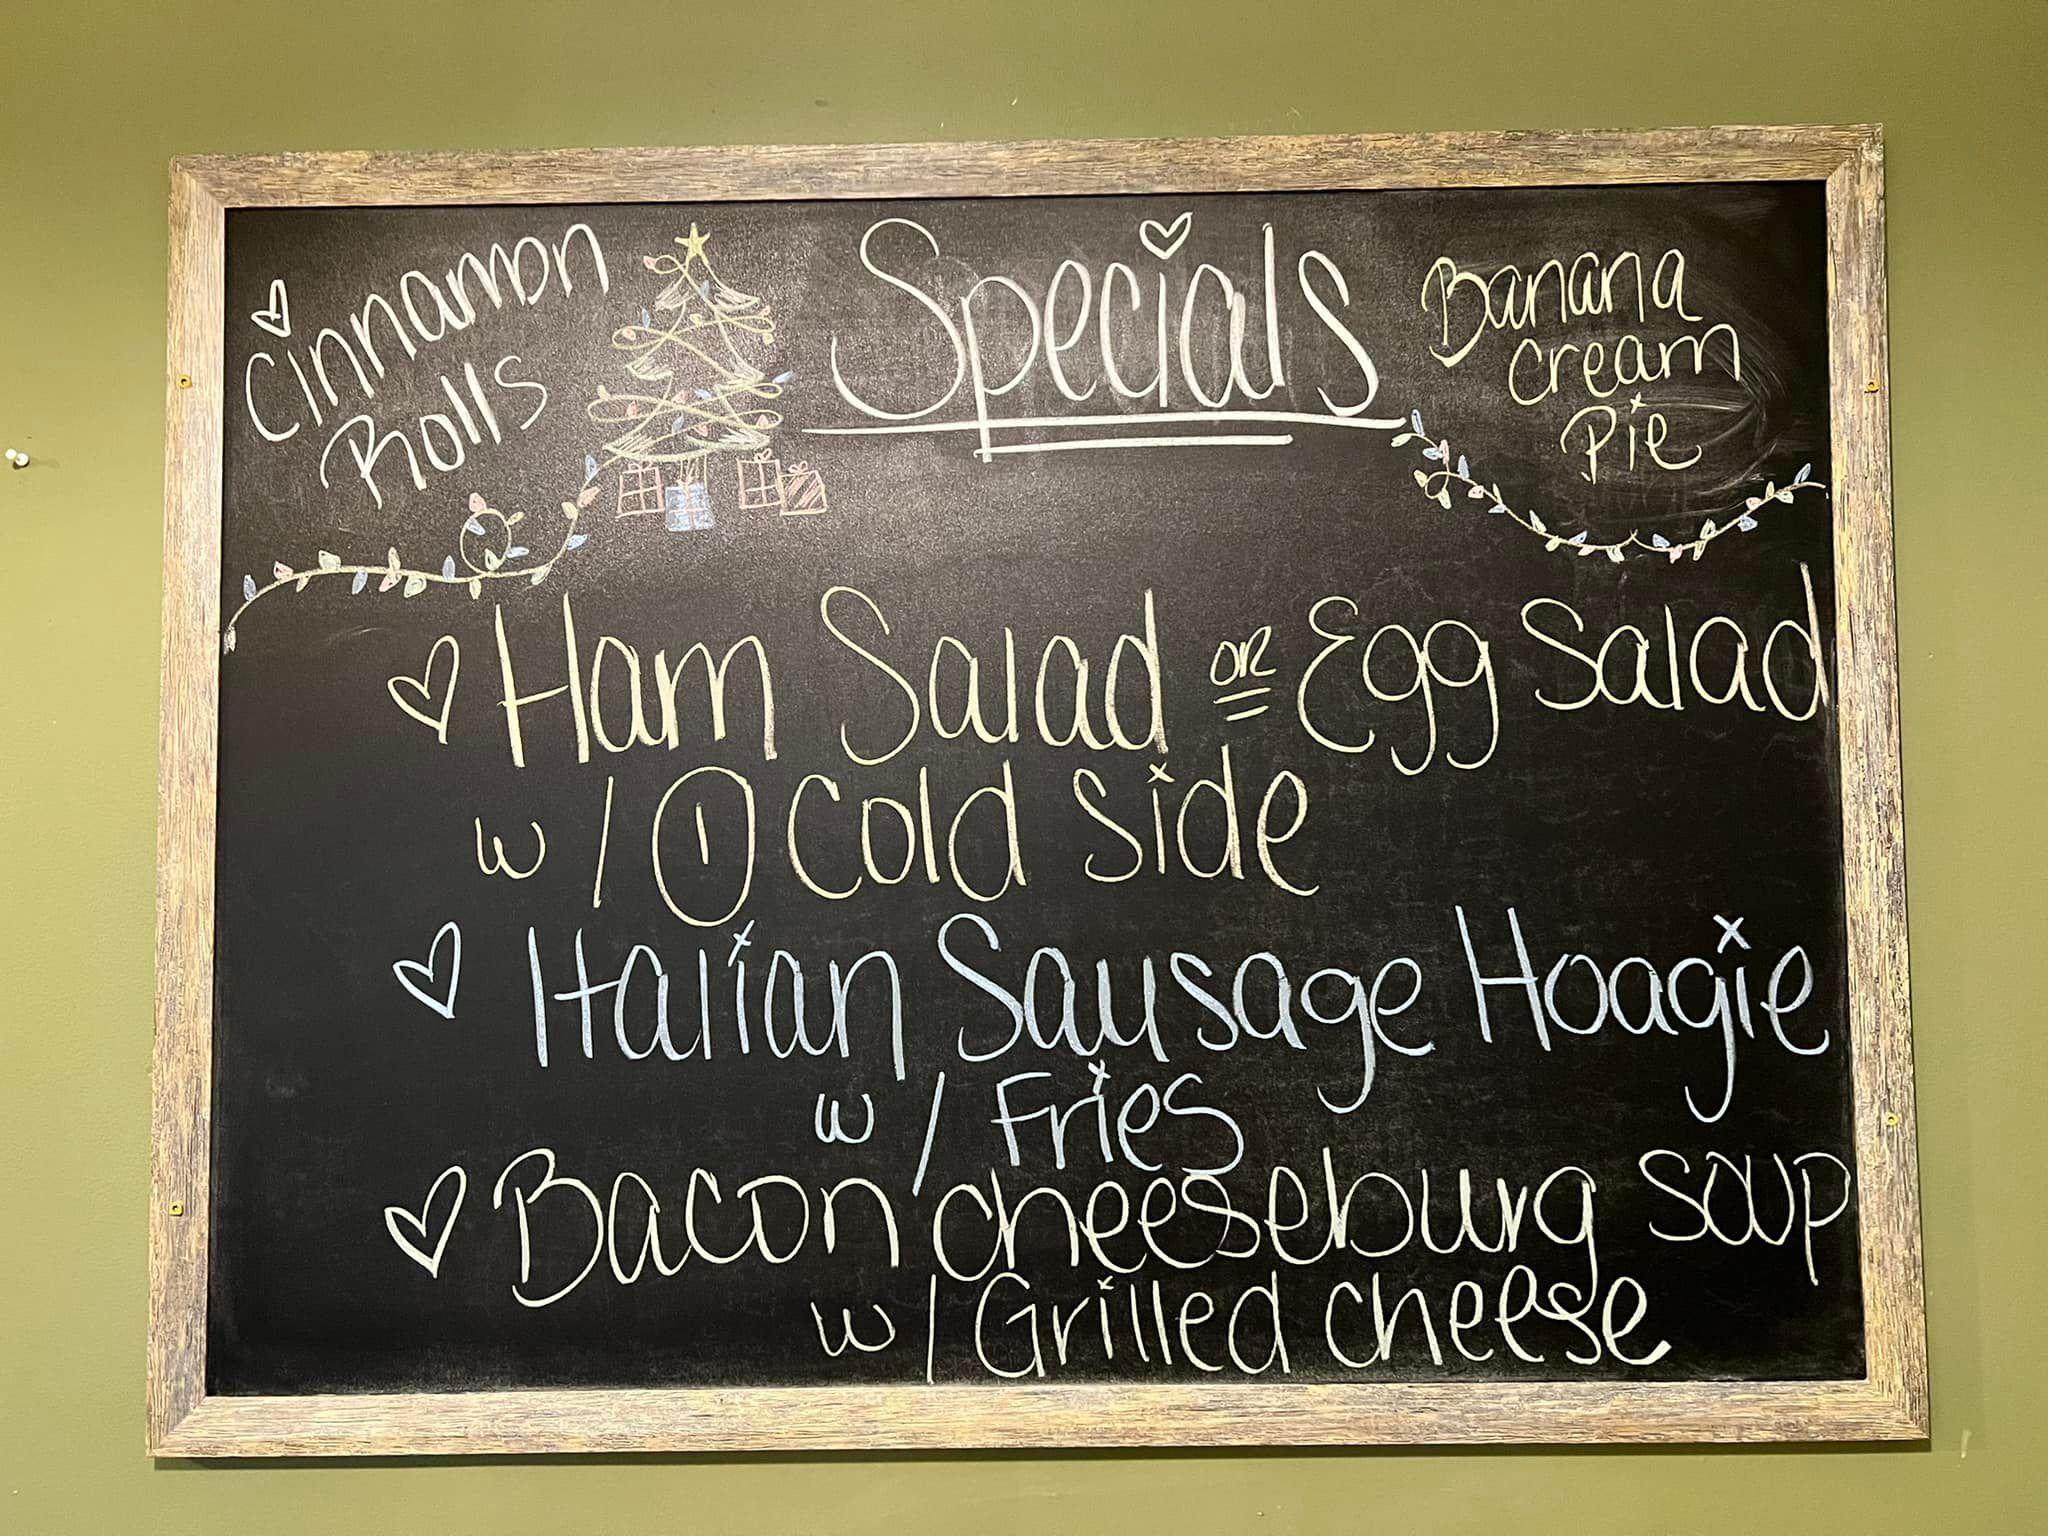 Cinnamon
Rolls
Specials
Banana
Cream
Pie
Ham Salad OR Egg Salad
w/ 1 Cold Side
Italian Sausage Hoagie
w/ Fries
Bacon cheeseburg soup
w/ Grilled cheese